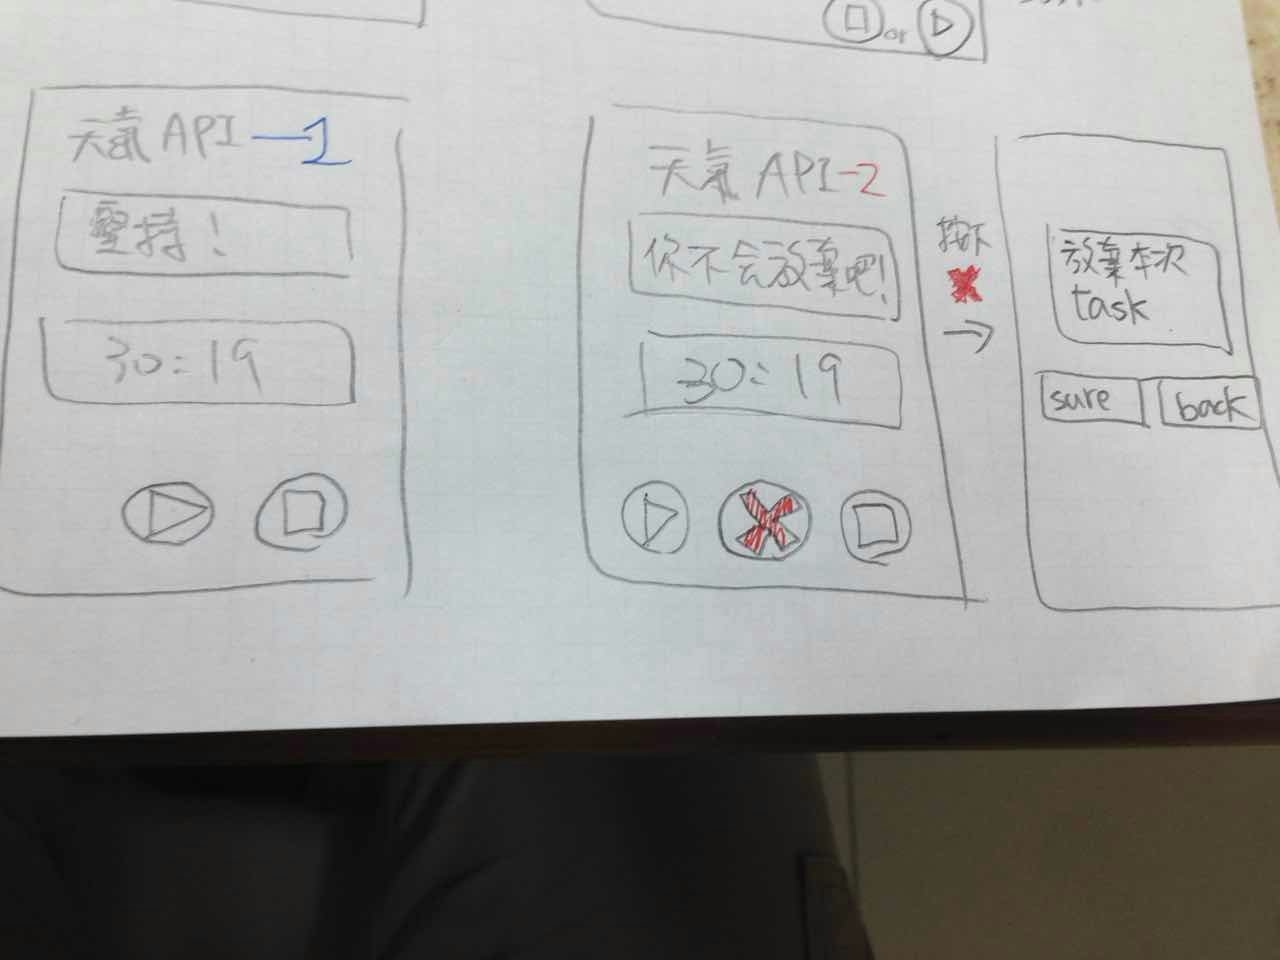 or
天氣 API —1
坚持！
30:19
天氣 API-2
你不会放棄吧!
30:19
按下
X
→
放棄本次
task
sure
back